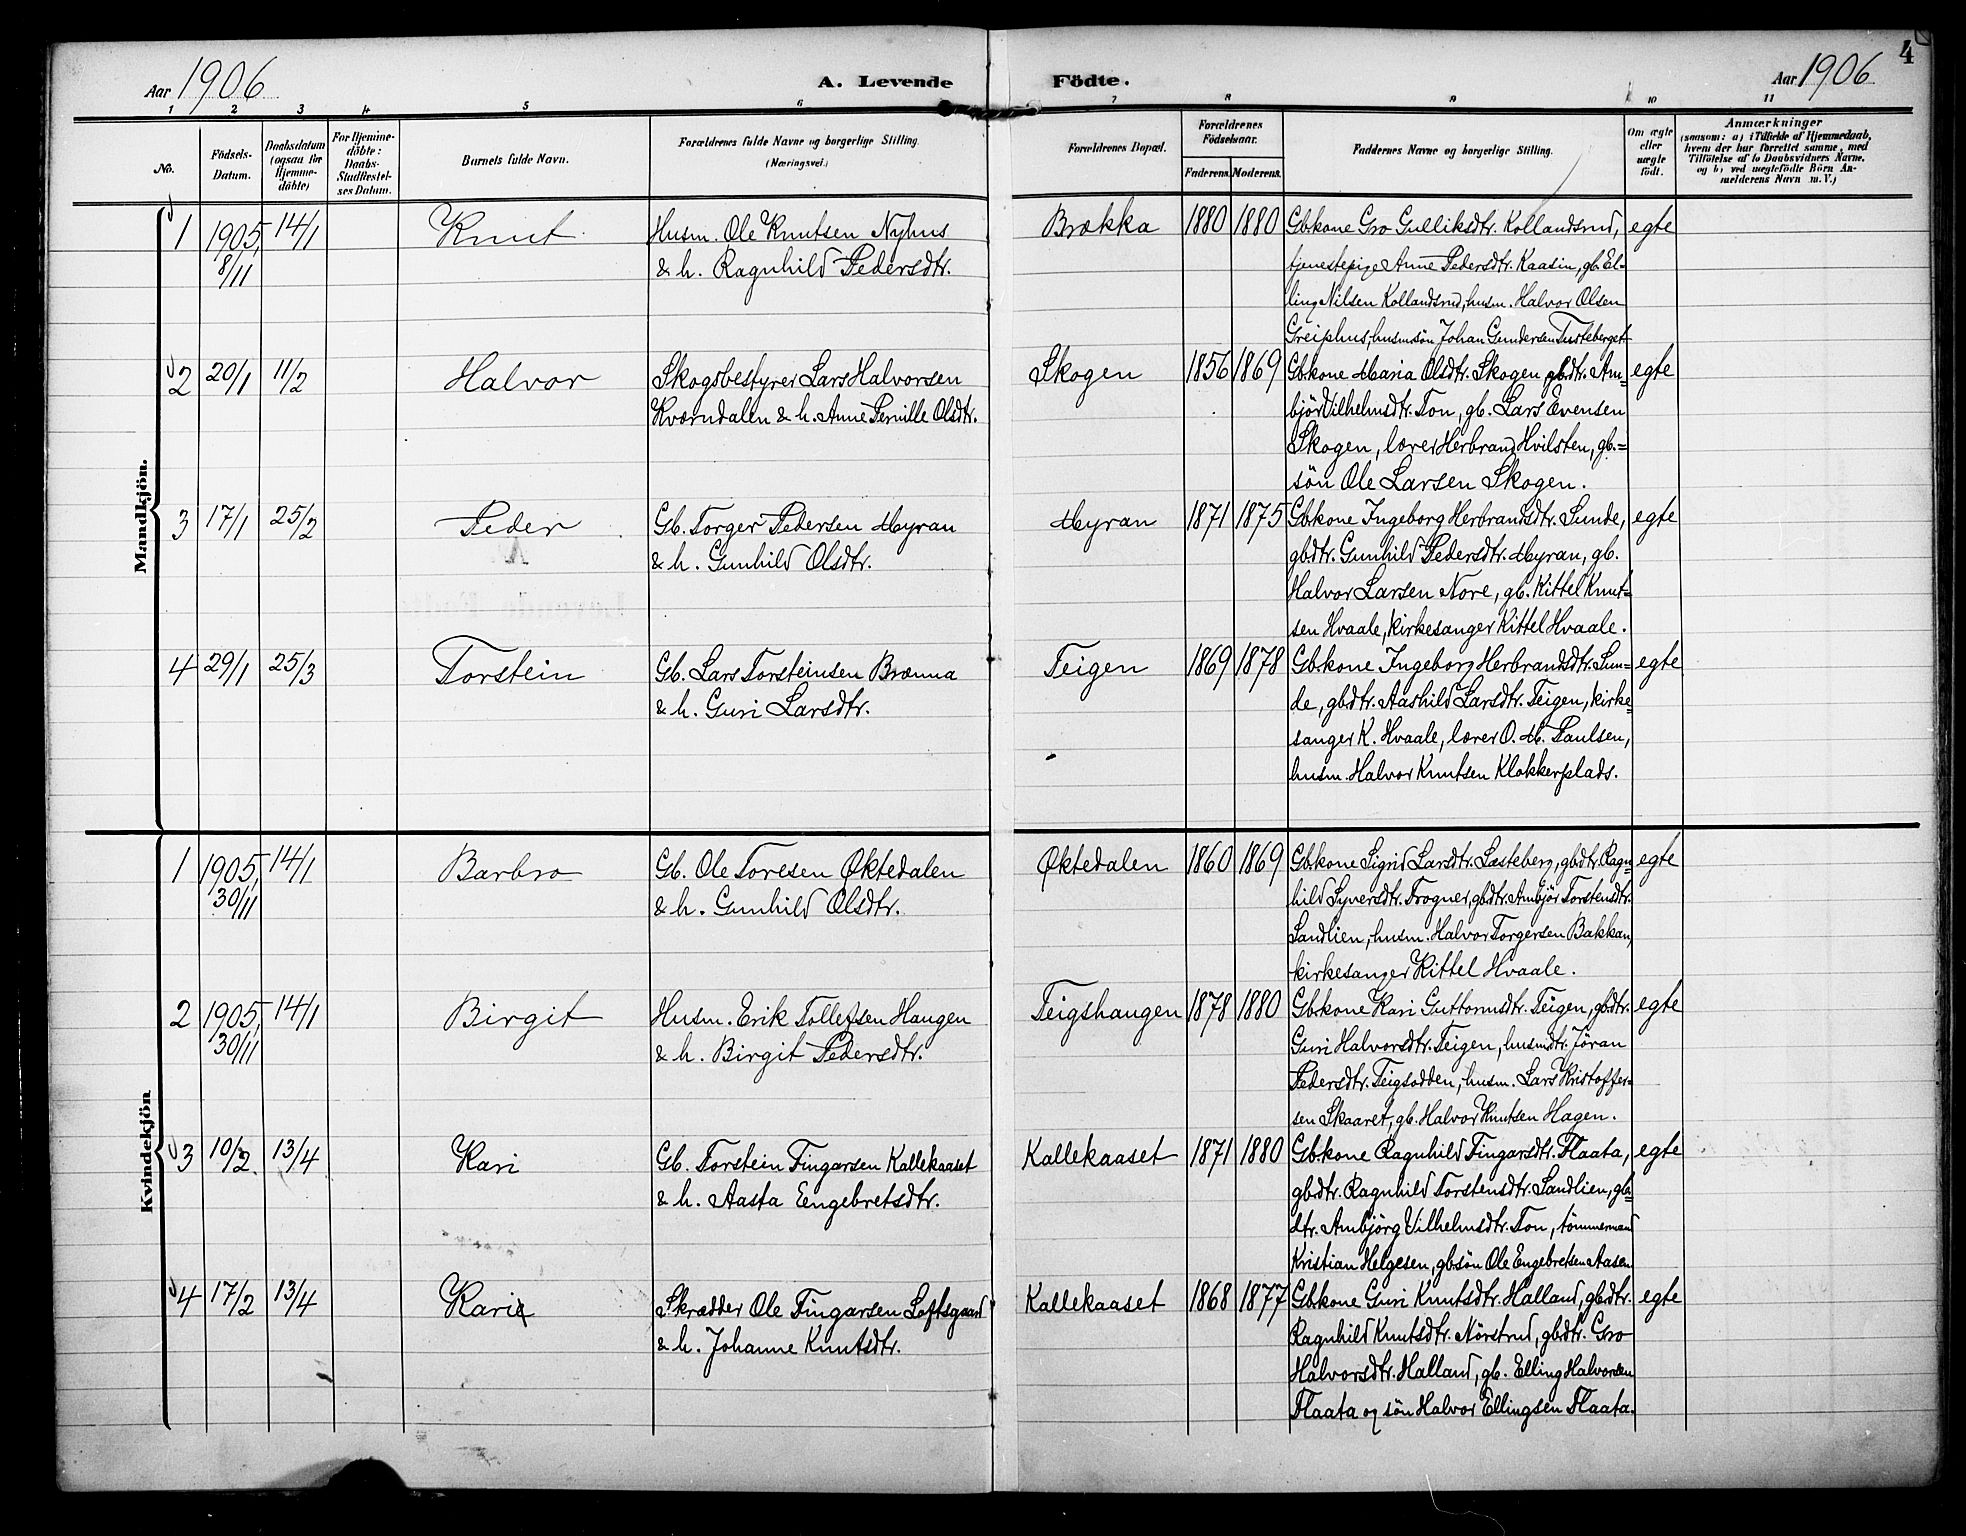 4
Aar 1906
A. Levende
Födte.
Aar 1906
1 2 3 4 5 6 7 8 9 10 11
No.
Fødsels-
Datum.
Daabsdatum
(ogsaa for
Hjemme-
döbte)
For Hjemme-
döbte:
Daabs-
Stadfæstel-
ses Datum.
Barnets fulde Navn.
Forældrenes fulde Navne og borgerlige Stilling.
(Næringsvei.)
Forældrenes Bopæl.
Forældrenes
Födselsaar.
Faderens.
Moderens.
Faddernes Navne og borgerlige Stilling.
Om ægte
eller
uægte
født.
Anmærkninger
(saasom: a) i Tilfælde af Hjemmedaab,
hvem der har forrettet samme, med
Tilföielse af to Daabsvidners Navne,
og b) ved uægtefödte Börn An-
melderens Navn m. V.)
Mandkjön.
1 1905, 8/11 14/1 Knut Husm. Ole Knutsen Nyhus
& h. Ragnhild Pedersdtr.
Brækka 1880 1880 Gbkone Gro Gulliksdtr. Kollandsrud, egte
tjenestepige Anne Pedersdtr. Kaasin, gb. El-
ling Nilsen Kollandsrud, husm. Halvor Olsen
Greiphus, husmsön Johan Gundersen Tusteberget
2 20/1 11/2 Halvor Skogsbestyrer Lars Halvorsen
Kværndalen & h. Anne Pernille Olsdtr.
Skogen 1856 1869 Gbkone Maria Olsdtr. Skogen gbdtr. Am- egte
björ Vilhelmsdtr. Ton, gb. Lars Evensen
Skogen, lærer Herbrand Hvilsten, gb.-
sön Ole Larsen Skogen.
3 17/1 25/2 Peder Gb. Torger Pedersen Myran
& h. Gunhild Olsdtr.
Myran 1871 1875 Gbkone Ingeborg Herbrandsdtr. Sunde, egte
gbdtr. Gunhild Pedersdtr. Myran, gb.
Halvor Larsen Nore, gb. Kittel Knut-
sen Hvaale, kirkesanger Kittel Hvaale.
4 29/1 25/3 Torstein Gb. Lars Torsteinsen Brænna
& h. Guri Larsdtr.
Teigen 1869 1878 Gbkone Ingeborg Herbrandsdtr. Sun- egte
de, gbdtr. Aashild Larsdtr. Teigen, kirke-
sanger K. Hvaale, lærer O. M. Paulsen,
husm. Halvor Knutsen Klokkerplads.
Kvindekjön
1 1905, 30/11 14/1 Barbro Gb. Ole Toresen Øktedalen
& h. Gunhild Olsdtr.
Øktedalen 1860 1869 Gbkone Sigrid Larsdtr. Sæteberg, gbdtr. Ragn- egte
hild Syversdtr. Frogner, gbdtr. Ambjör Torstensdtr.
Sandlien, husm. Halvor Torgersen Bakkan,
kirkesanger Kittel Hvaale.
2 1905, 30/11 14/1 Birgit Husm. Erik Tollefsen Haugen
& h. Birgit Pedersdtr.
Teigshaugen 1878 1880 Gbkone Kari Guttormsdtr. Teigen, gbdtr. egte
Guri Halvorsdtr. Teigen, husmdtr. Jöran
Pedersdtr. Teigsodden, husm. Lars Kristoffer-
sen Skaaret, gb. Halvor Knutsen Hagen.
3 10/2 13/4 Kari Gb. Torstein Fingarsen Kallekaaset
& h. Aasta Eengebretsdtr.
Kallekaaset 1871 1880 Gbkone Ragnhild Fingarsdtr. Flaata, egte
gbdtr. Ragnhild Torstensdtr. Sandlien, gb-
dtr. Ambjörg Vilhelmsdtr. Ton, tömmermand
Kristian Helgesen, gbsön Ole Engebretsen Aasen
4 17/2 13/4 Kari Skrædder Ole Fingarsen Loftsgaard
& h. Johanne Knutsdtr.
Kallekaaset 1868 1877 Gbkone Guri Knutsdtr. Halland, gbdtr. egte
Ragnhild Knutsdtr. Nörstrud, gbdtr. Gro
Halvorsdtr. Halland, gb. Elling Halvorsen
Flaata og sön Halvor Ellingsen Flaata.